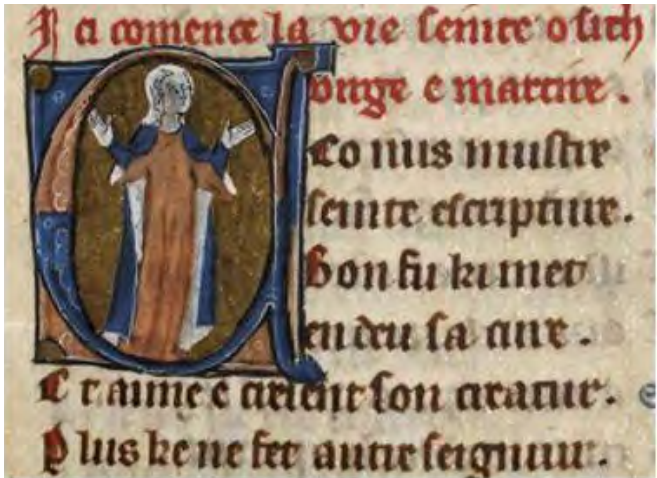 I ci comence la vie seinte osith
virge e martire .
Co nus mustre
seinte escripture.
Bon fu ki met
en deu sa cure .
E t aime e crient son creatur.
P lus ke ne fet autre seignur.